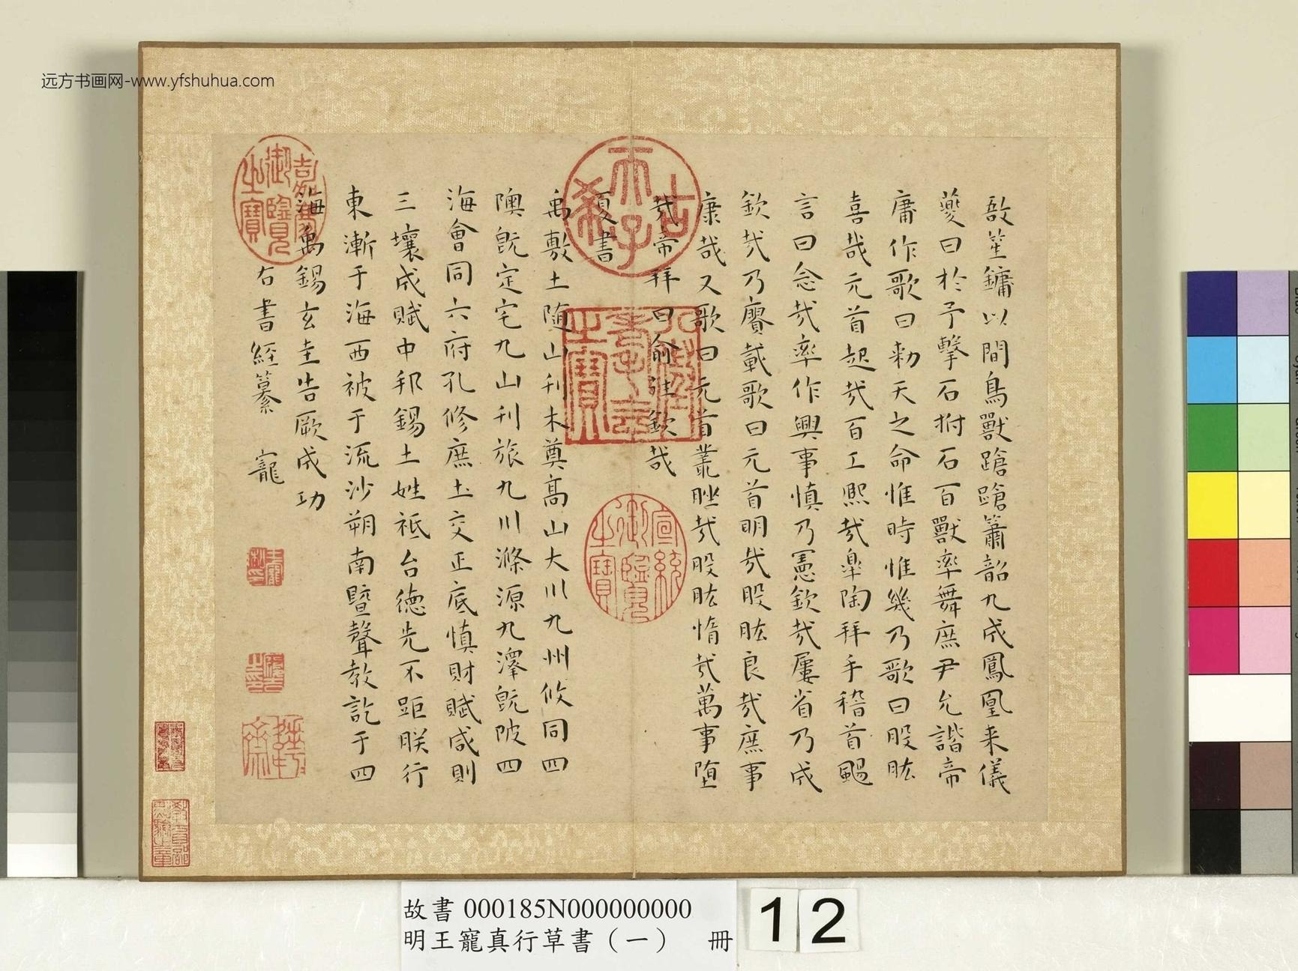 远方书画网-www.yfshuhua.com
敔笙鏞以間鳥獸蹌蹌簫韶九成鳳凰来儀
夔曰於予擊石拊石百獸率舞庶尹允諧帝
庸作歌曰勑天之命惟時惟幾乃歌曰股肱
喜哉元首起哉百工熙哉皐陶拜手稽首颺
言曰念哉率作興事慎乃憲欽哉屢省乃成
欽哉乃賡載歌曰元首明哉股肱良哉庶事
康哉又歌曰元首叢脞哉股肱惰哉萬事堕
哉帝拜曰俞往欽哉
夏書
禹敷土随山刊木奠高山大川九州攸同四
隩既定宅九山刊旅九川滌源九澤既陂四
海會同六府孔修庶土交正底慎財賦咸則
三壤成賦中邦錫土姓祗台徳先不距朕行
東漸于海西被于流沙朔南暨聲教訖于四
海禹錫玄圭告厥成功
右書經纂 寵
古希天子
八徵耄念之寶
嘉慶御覽之寶
宣統御覽之寶
故書 000185N000000000
明王寵真行草書（一） 冊
12